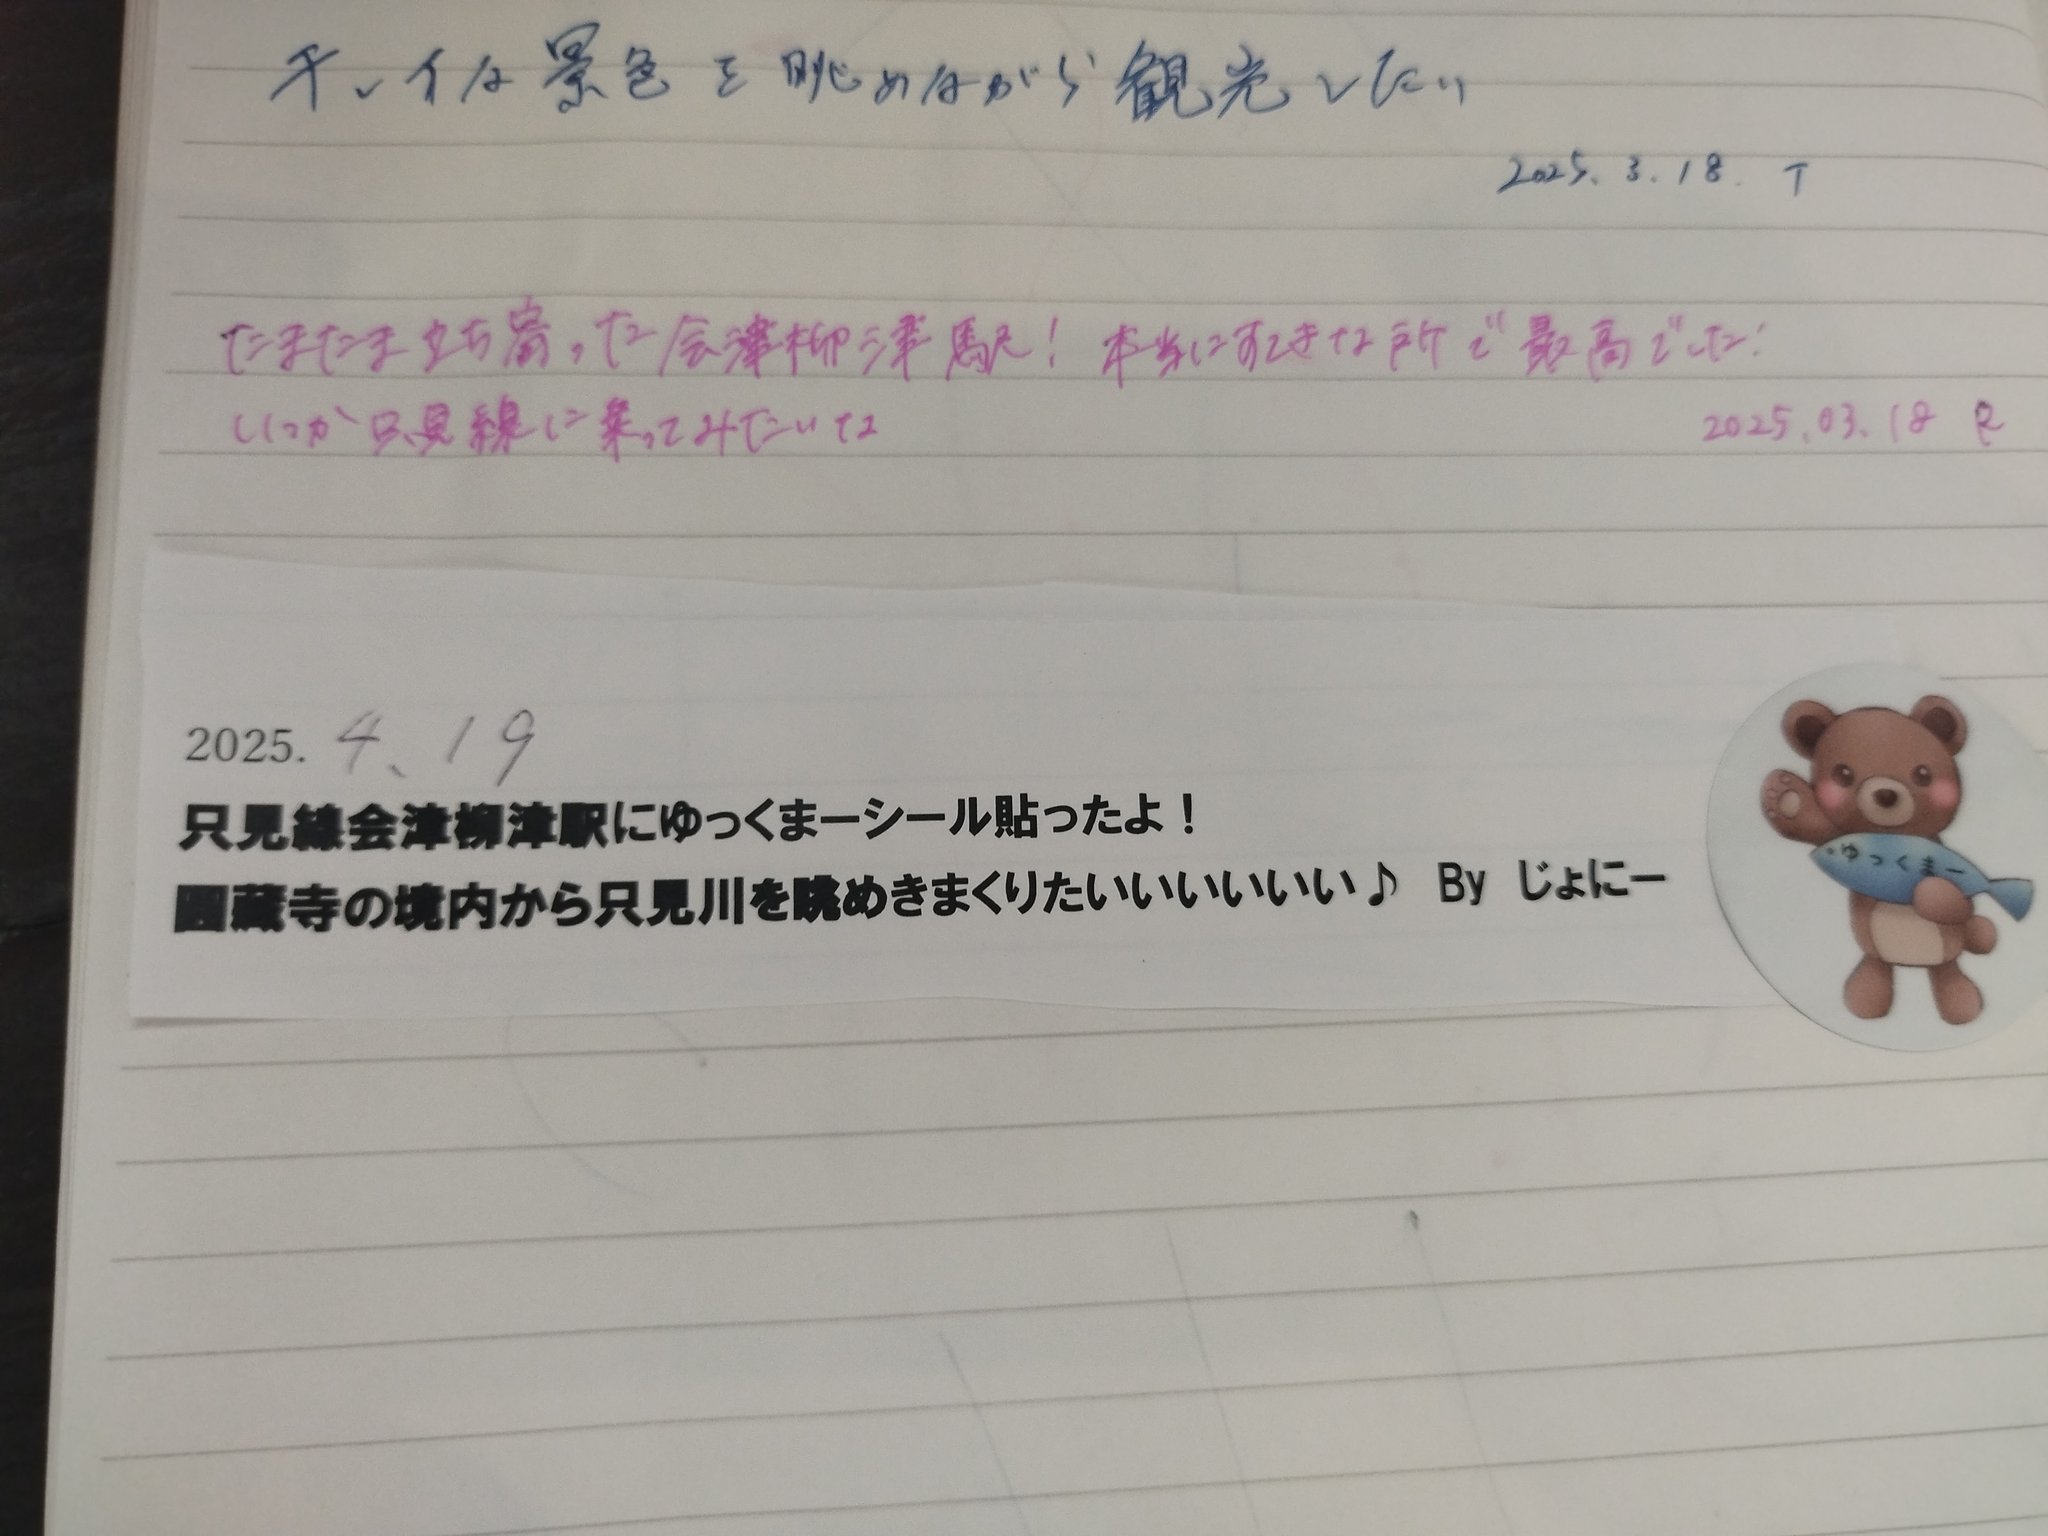 キレイな景色を眺めながら観光したい
2025.3.18. T
たまたま立ち寄った会津柳津駅! 本当にすてきな所で最高でした!
いつか只見線に乗ってみたいな
2025.03.18 R
2025. 4.19
只見線会津柳津駅にゆっくまーシール貼ったよ！
圓蔵寺の境内から只見川を眺めきまくりたいいいいいい♪ By じょにー
ゆっくまー